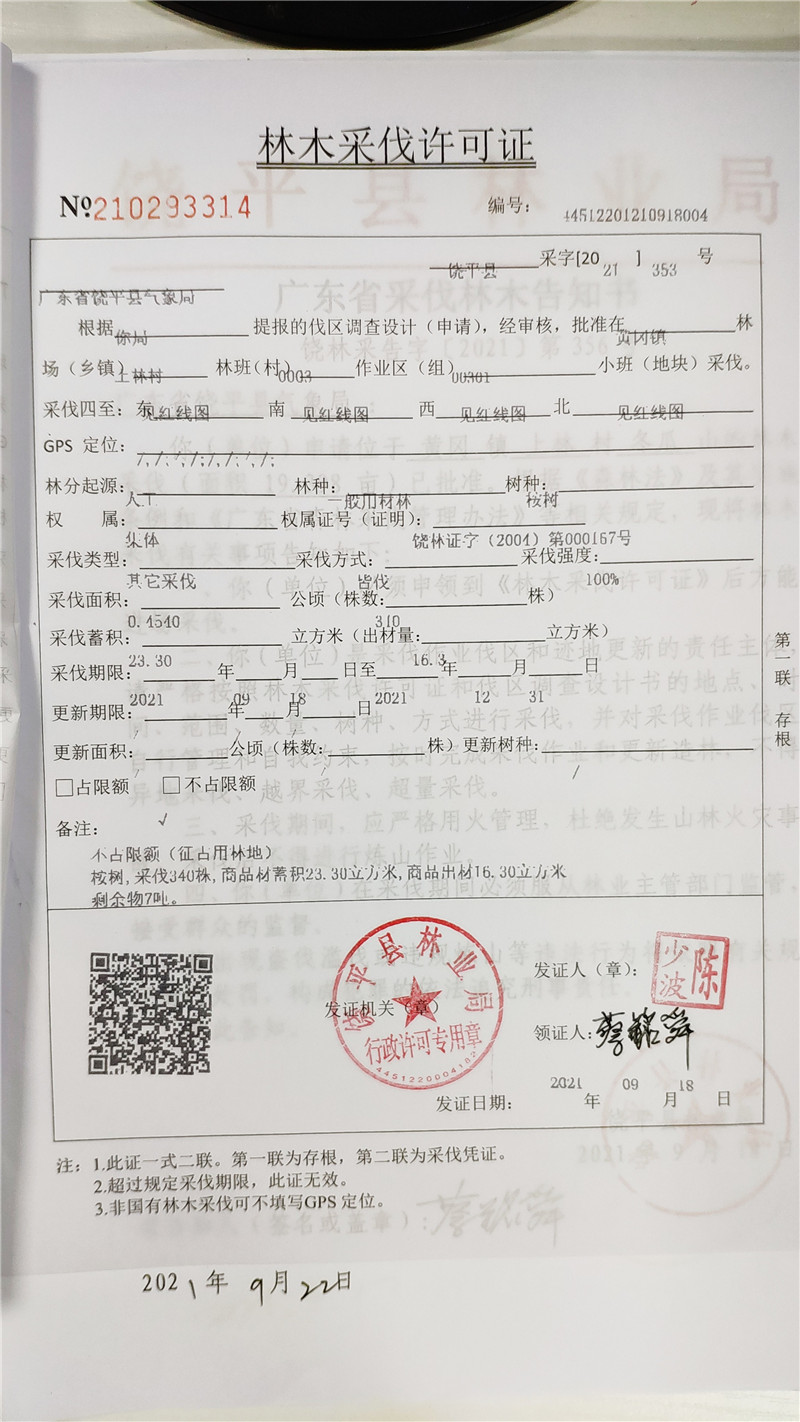 林木采伐许可证
№210293314 编号： 44512201210918004
饶平县 采字[2021] 353 号
广东省饶平县气象局
根据 你局 提报的伐区调查设计（申请），经审核，批准在 黄冈镇 林
场（乡镇） 上林村 林班(村) 0003 作业区（组） 00301 小班（地块）采伐。
采伐四至：东 见红线图 南 见红线图 西 见红线图 北 见红线图
GPS 定位： /,/,/,/;/,/,/,/;
林分起源： 人工 林种： 一般用材林 树种： 桉树
权 属： 集体 权属证号（证明）： 饶林证字（2004）第000167号
采伐类型： 其它采伐 采伐方式： 皆伐 采伐强度： 100%
采伐面积： 0.4540 公顷（株数： 340 株）
采伐蓄积： 23.30 立方米（出材量： 16.3 立方米）
采伐期限： 2021 年 09 月 18 日至 2021 年 12 月 31 日
更新期限： / 年 / 月 / 日
更新面积： / 公顷（株数： / 株）更新树种： /
□占限额 □不占限额
√
备注：
不占限额（征占用林地）
桉树,采伐340株,商品材蓄积23.30立方米,商品出材16.30立方米
剩余物7吨。
第一联 存根
饶平县林业局
发证机关（章）
行政许可专用章
4451220004182
发证人（章）： 陈少波
领证人: 蔡铭舜
发证日期： 2021 年 09 月 18 日
注：1.此证一式二联。第一联为存根，第二联为采伐凭证。
2.超过规定采伐期限，此证无效。
3.非国有林木采伐可不填写GPS 定位。
2021年 9月22日